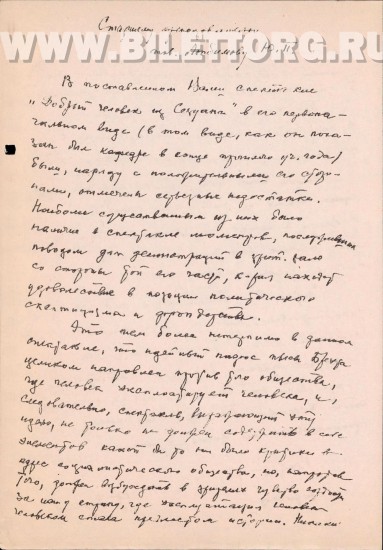 WWW.BILETTORG.RU
Старшему преподавателю
тов. Ю. П.
В поставленном Вами спектакле
"Добрый человек из Сезуана" в его первона-
чальном виде (в том виде, как он пока-
зан был кафедре в конце прошлого уч. года)
были, наряду с положительными его сторо-
нами, отмечены серьезные недостатки.
Наиболее существенным из них было
наличие в спектакле моментов, послуживших
поводом для демонстраций в зрит. зале
со стороны той его части, к-рая находит
удовольствие в позиции политического
скептицизма и
Это тем более нетерпимо в данном
спектакле, что идейный пафос пьесы Брехта
целиком направлен против того общества,
где человек эксплоатирует человека, и,
следовательно, спектакль, выражающий эту
идею, не только не должен содержать в себе
элементов какой бы то ни было критики в
адрес социалистического общества, но, напротив
того, должен возбуждать в зрителях чувство гордости
за нашу страну, где эксплуатация человека
человеком стала предметом истории.
WWW.BILETTORG.RU